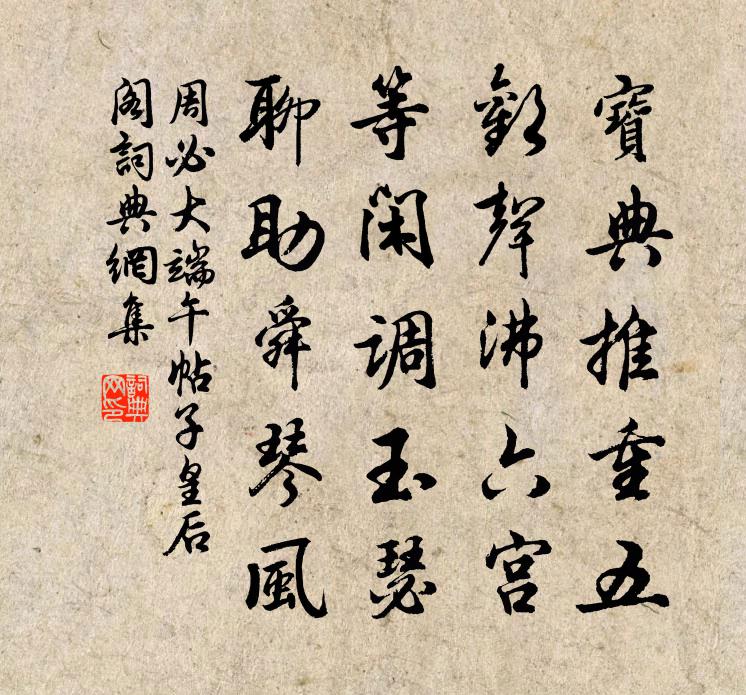 寶典推重五
歡聲沸六宮
等閑調玉瑟
聊助舜琴風
周必大端午帖子皇后
閣詞典網集
詞典
网印